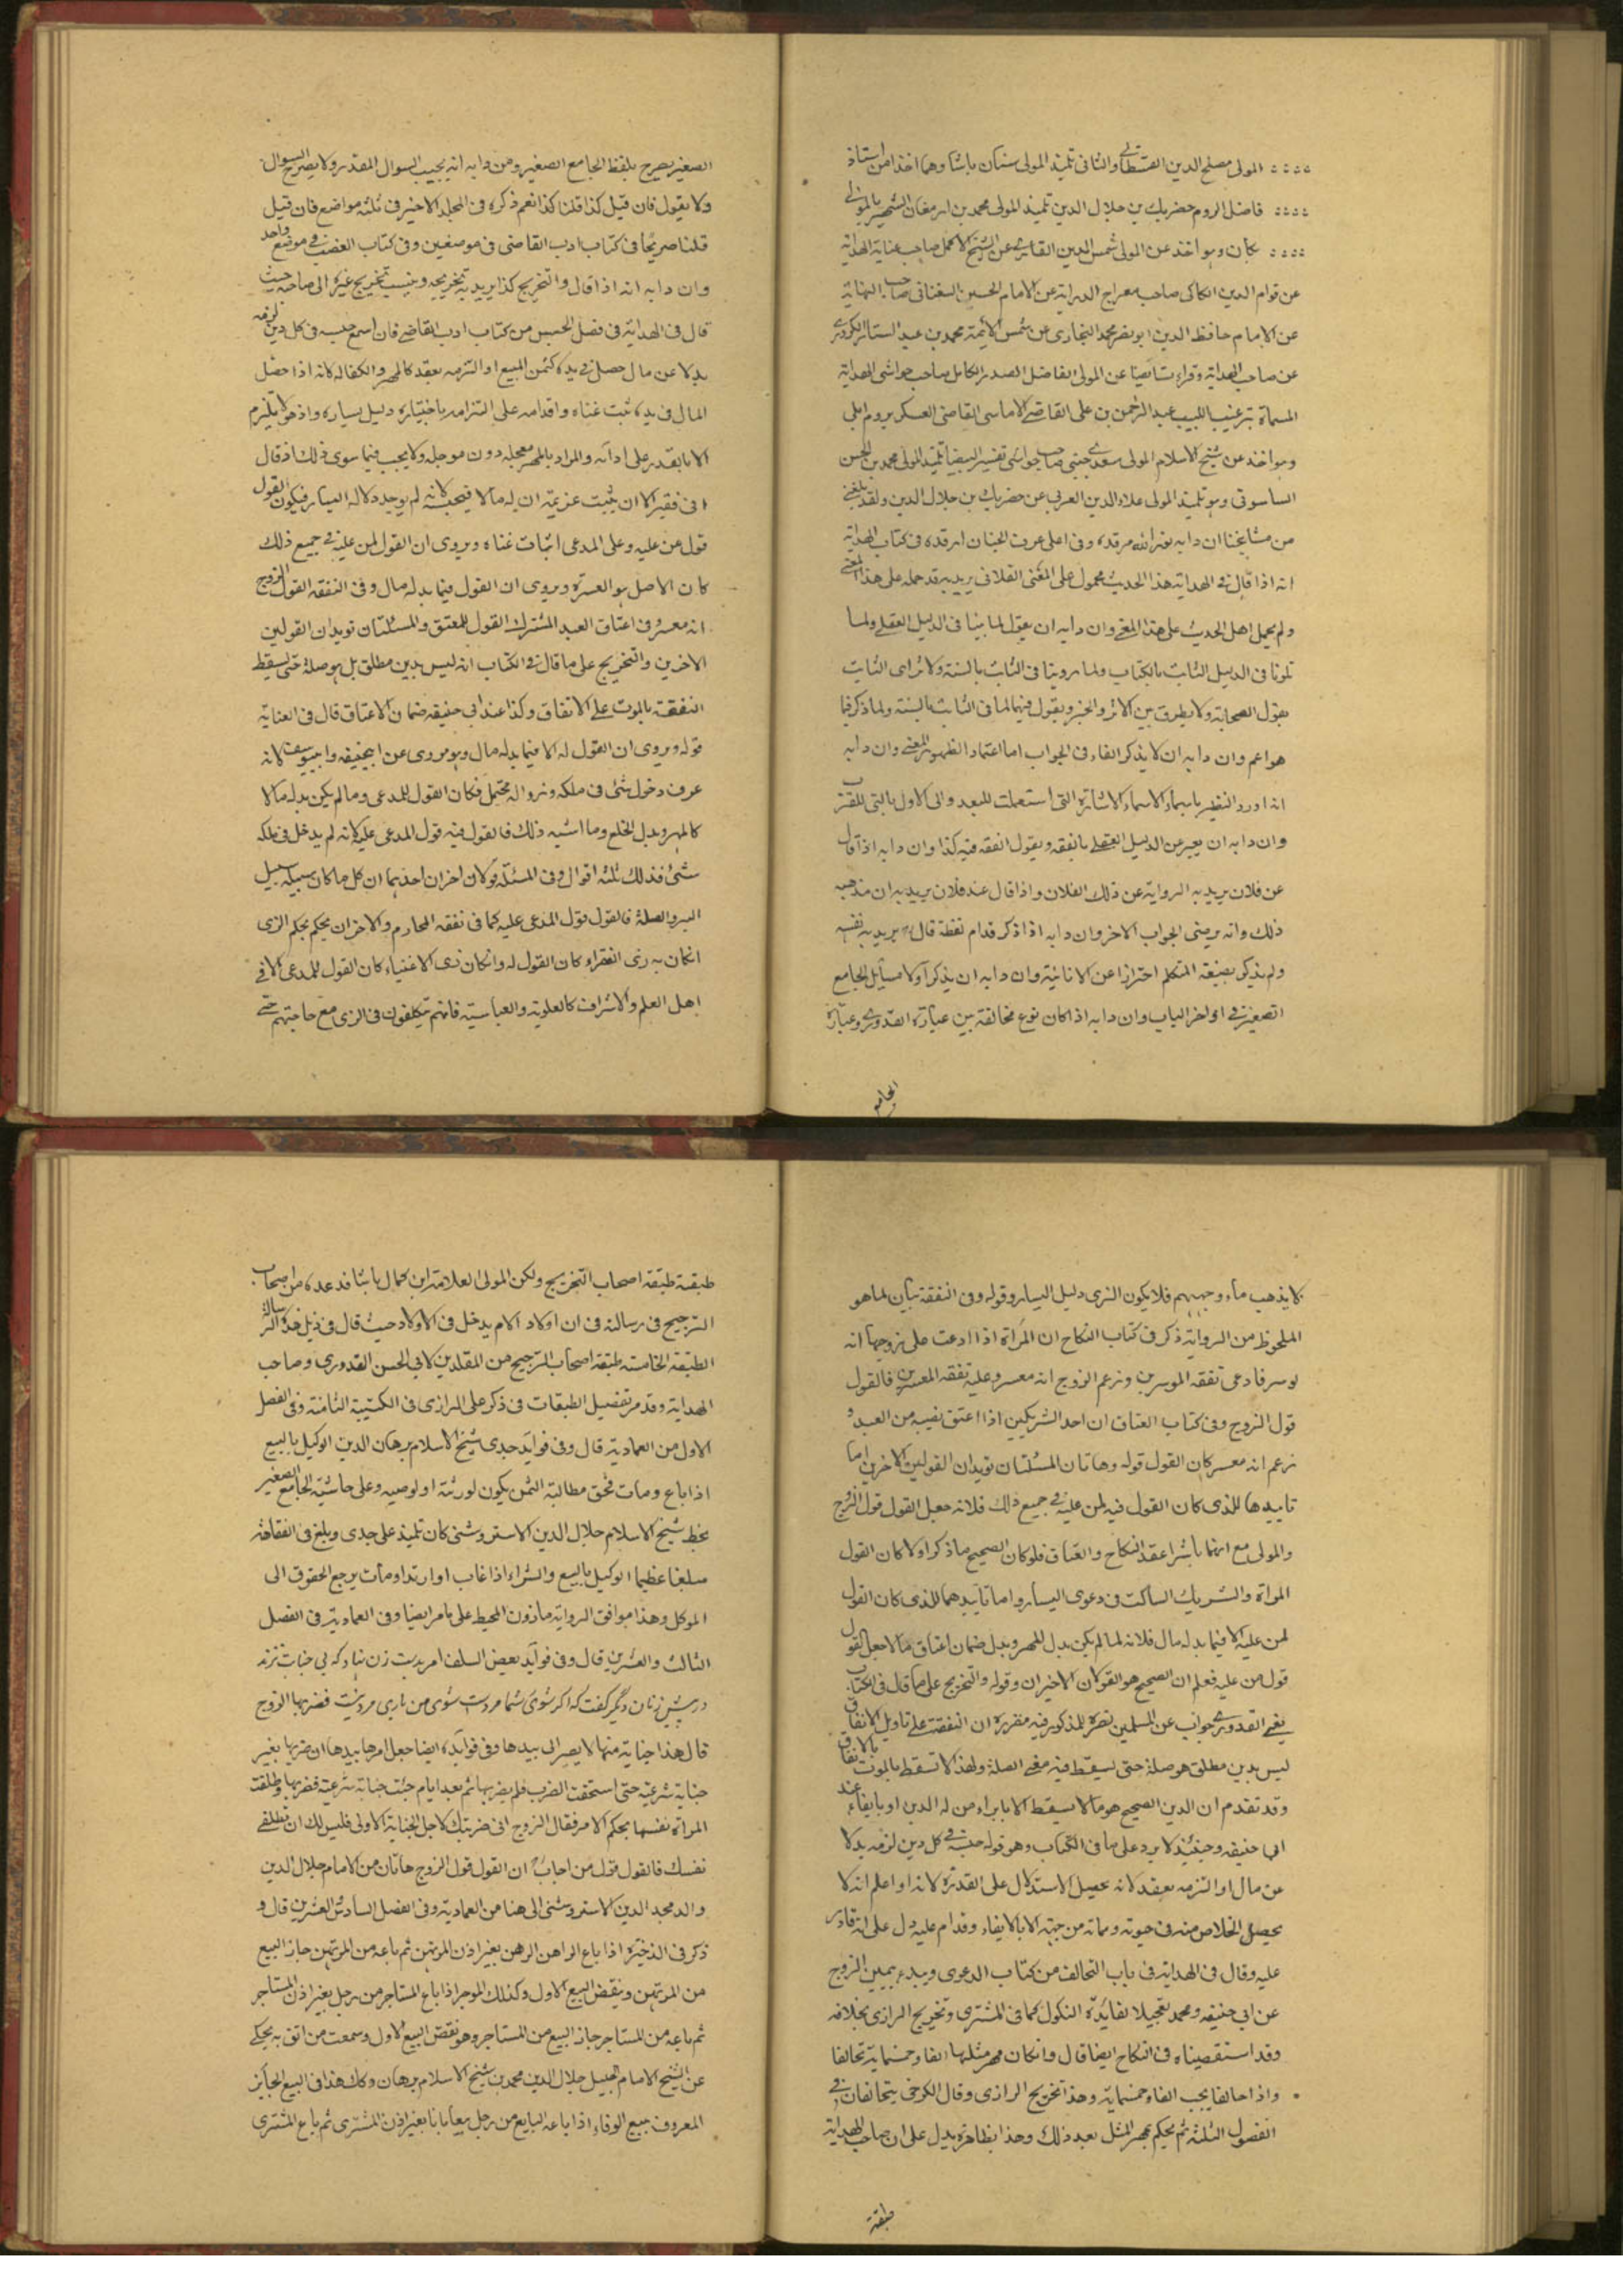 المولى مصلح الدين القسطلاني والثاني تلميذ المولى سنان باشا وهما اخذا من استاذ
فاضل الروم حضر بك بن جلال الدين تلميذ المولى محمد بن ارمغان الشهير بالمولى
يكان وهو اخذ عن المولى شمس الدين الفناري عن الشيخ الاكمل صاحب عناية الهداية
عن قوام الدين الكاكي صاحب معراج الدراية عن الامام الحسين السغناقي صاحب النهاية
عن الامام حافظ الدين ابو نصر محمد البخاري عن شمس الائمة محمد بن عبد الستار الكردري
عن صاحب الهداية وقراءت ايضا عن المولى الفاضل الصدر الكامل صاحب حواشي الهداية
المسماة بترغيب اللبيب عبد الرحمن بن على القاضي الاماسي القاضي العسكر بروم ايلي
وهو اخذ عن شيخ الاسلام المولى سعدي جلبي صاحب حواشي تفسير البيضا تلميذ المولى محمد بن الحسن
الساسوني وهو تلميذ المولى علاء الدين العربي عن حضر بك بن جلال الدين ولقد بلغني
من مشايخنا ان دابه نفر الله مرقده وفي اعلى غرف الجنان ارقده في كتاب الهداية
انه اذا قال في الهداية هذا الحديث محمول على المعنى الفلاني يريد به قد حمله على هذا المعنى
ولم يحمل اهل الحديث على هذا المعنى وان دابه ان يقول لما بينا في الدليل العقلي ولما
تلونا في الدليل الثابت بالكتاب ولما روينا في الثابت بالسنة ولاثراى الثابت
بقول الصحابة ولا يفرق بين الاثر والخبر ويقول فيهما لما في الثابت بالسنة ولما ذكر فيما
هو اعم وان دابه ان لا يذكر الفاء في الجواب اما اعتماد الظهور المعنى وان دابه
اذا اورد النظير باسماء الاسماء الاشارة التي استعملت للبعيد والى الاول بالتي للقريب
وان دابه ان يعبر عن الدليل العقلي بالفقه ويقول الفقه فيه كذا وان دابه اذا قال
عن فلان يريد به الرواية عن ذلك الفلان واذا قال عند فلان يريد به ان مذهبه
ذلك وانه يرضى الجواب الاخر وان دابه اذا ذكر قدام لفظة قال يريد به نفسه
ولم يذكر بصيغة المتكلم احترازا عن الانانية وان دابه ان يذكر اولا مسائل الجامع
الصغير في اواخر الباب وان دابه اذا كان نوع مخالفة بين عبارة القدوري وعبارة
الجامع
الصغير يصرح بلفظ الجامع الصغير ومن دابه انه يجيب السوال المقدر ولا يصرح السوال
ولا يقول فان قيل كذا قلنا كذا نعم ذكره في المجلد الاخير في ثلثه مواضع فان قيل
قلنا صريحا في كتاب ادب القاضي في موضعين وفي كتاب الغصب في موضع واحد
وان دابه انه اذا قال والتخريج كذا يريد به تخريجه وينسب تخريج غيره الى صاحبه حيث
قال في الهداية في فصل الحبس من كتاب ادب القاضي فان امتنع حبسه في كل دين لزمه
بدلا عن مال حصل في يده كثمن المبيع او التزمه بعقد كالمهر والكفالة لانه اذا حصل
المال في يده ثبت غناه واقدامه على التزامه باختياره دليل يساره واذ هو لا يلتزم
الا ما يقدر على ادائه والمراد بالمهر معجله دون موجله ولا يحبس فيما سوى ذلك اذ قال
اني فقير الا ان يثبت غريمه ان له مالا فيحبسه لانه لم يوجد دلالة اليسار فيكون القول
قول من عليه وعلى المدعى اثبات غناه ويروى ان القول لمن عليه في جميع ذلك
كان الاصل هو العسرة ويروى ان القول فيما بدله مال وفي النفقه القول الزوج
انه معسر وفي اعتاق العبد المشترك القول للمعتق والمسئلتان تويدان القولين
الاخرين والتخريج على ما قال في الكتاب انه ليس بدين مطلق بل هو صلة حتى يسقط
النفقة بالموت على الاتفاق وكذا عند ابي حنيفه ضمان الاعتاق قال في العناية
قوله ويروى ان القول له الا فيما بدله مال وهو مروى عن ابيحنيفه وابييوسف لانه
عرف دخول شئ في ملكه وزواله محتمل فكان القول للمدعى وما لم يكن بدله مالا
كالمهر وبدل الخلع وما اشبه ذلك فالقول فيه قول المدعى عليه لانه لم يدخل في ملكه
شئ فذلك ثلثه اقوال وفي المسئلة قولان اخران احدهما ان كل ما كان سبيله سبيل
البر والصلة فالقول قول المدعى عليه كما في نفقه المحارم والاخر ان يحكم بحكم الزى
انكان به زى الفقراء كان القول له وانكان زى الاغنياء كان القول للمدعى الا في
اهل العلم والاشراف كالعلوية والعباسية فانهم يتكلفون في الزى مع حاجتهم حتى
لا يذهب ماء وجههم فلا يكون الزى دليل اليسار وقوله وفي النفقة بيان لما هو
الملحوظ من الرواية ذكر في كتاب النكاح ان المرأة اذا ادعت على زوجها انه
موسر فادعى نفقه الموسرين وزعم الزوج انه معسر وعليه نفقه المعسرين فالقول
قول الزوج وفي كتاب العتاق ان احد الشريكين اذا اعتق نصيبه من العبد و
زعم انه معسر كان القول قوله وهاتان المسئلتان تويدان القولين الاخرين اما
تاييدها للذى كان القول فيه لمن عليه في جميع ذلك فلانه جعل القول قول الزوج
والمولى مع انهما باشرا عقد النكاح والعتاق فلو كان الصحيح ما ذكر اولا كان القول
المراة والشريك الساكت في دعوى اليسار واما تاييدهما للذى كان القول
لمن عليه الا فيما بدله مال فلانه لما لم يكن بدل المهر وبدل ضمان اعتاق مالا جعل القول
قول من عليه فعلم ان الصحيح هو القولان الاخيران وقوله والتخريج على ما قال في الكتاب
يعني القدوري جواب عن المسلمين نصرة للمذكور فيه مقرره ان النفقة على تاويل الاتفاق
ليس بدين مطلق هو صلة حتى يسقط فيه معنى الصلة ولهذا لا تسقط بالموت بالاتفاق
وقد تقدم ان الدين الصحيح هو ما لا يسقط الا بابراء من له الدين او بايفاء عند
ابي حنيفه وحينئذ لا يرد على ما في الكتاب وهو قوله حبسه في كل دين لزمه بدلا
عن مال او التزمه بعقد لانه يحصل الاستدلال على القدرة لانه او اعلم انه لا
يحصل الخلاص منه في حيوته ومماته من جهته الا بالايفاء وقدام عليه دل على انه قادر
عليه وقال في الهداية في باب التحالف من كتاب الدعوى ويبدء بيمين الزوج
عن ابي حنيفه ومحمد تعجيلا لفائدة النكول كما في المشترى وتخريج الرازى بخلافه
وقد استقصيناه في النكاح ايضا قال وانكان مهر مثلها الفا وخمسمايه تحالفا
واذا حالفا يجب الفا وخمسمايه وهذا تخريج الرازى وقال الكرخي يتحالفان في
الفصول الثلثه ثم يحكم بمهر المثل بعد ذلك وهذا بظاهره يدل على ان صاحب الهداية
طبقة
طبقة طبقه اصحاب التخريج ولكن المولى العلامة ابن كمال باشا قد عده من اصحاب
الترجيح في رسالته في ان اولاد الام يدخل في الاولاد حيث قال في ذيل هذه الرسالة
الطبقه الخامسة طبقه اصحاب الترجيح من المقلدين كابي الحسن القدوري وصاحب
الهداية وقد مر تفصيل الطبقات في ذكر على الرازى في الكتيبة الثامنة وفي الفصل
الاول من العمادية قال وفي فوائد جدى شيخ الاسلام برهان الدين الوكيل بالبيع
اذا باع ومات فحق مطالبة الثمن يكون لورثة او لوصيه وعلى حاشية الجامع الصغير
بخط شيخ الاسلام جلال الدين الاستروشنى كان تلميذ على جدى وبلغ في الفقاهة
مبلغا عظيما الوكيل بالبيع والشراء اذا غاب او ارتد او مات يرجع الحقوق الى
الموكل وهذا موافق الرواية ماذون المحيط على ما مر ايضا وفي العمادية في الفصل
الثالث والعشرين قال وفي فوائد بعض السلف امر بدست زن نهاد كه بي جنايت نزند
در پيش زنان ديگر كفت كه اكر شوى شما مردست شوى من بارى مرد نيست فضربها الزوج
قال هذا جنايه منها لا يصير الى بيدها وفي فوائده ايضا جعل امرها بيدها ان ضربها بغير
جناية شرعية حتى استحقت الضرب فلم يضربها ثم بعد ايام جنت جناية شرعية فضربها وطلقت
المراة نفسها بحكم الامر فقال الزوج انى ضربتك لاجل الجناية الاولى فليس لك ان تطلقى
نفسك فالقول قول من اجاب ان القول قول الزوج هاتان من الامام جلال الدين
والد مجد الدين الاستروشنى الى هنا من العمادية وفي الفصل السادس العشرين قال و
ذكر في الذخيرة اذا باع الراهن الرهن بغير اذن المرتهن ثم باعه من المرتهن جاز البيع
من المرتهن وينقض البيع الاول وكذلك الموجر اذا باع المستاجر من رجل بغير اذن المستاجر
ثم باعه من المستاجر جاز البيع من المستاجر وهو نقض البيع الاول وسمعت من اثق به يحكى
عن الشيخ الامام الجليل جلال الدين محمد بن شيخ الاسلام برهان وكك هذا في البيع الجايز
المعروف ببيع الوفاء اذا باعه البايع من رجل بيعا باتا بغير اذن المشترى ثم باع المشترى